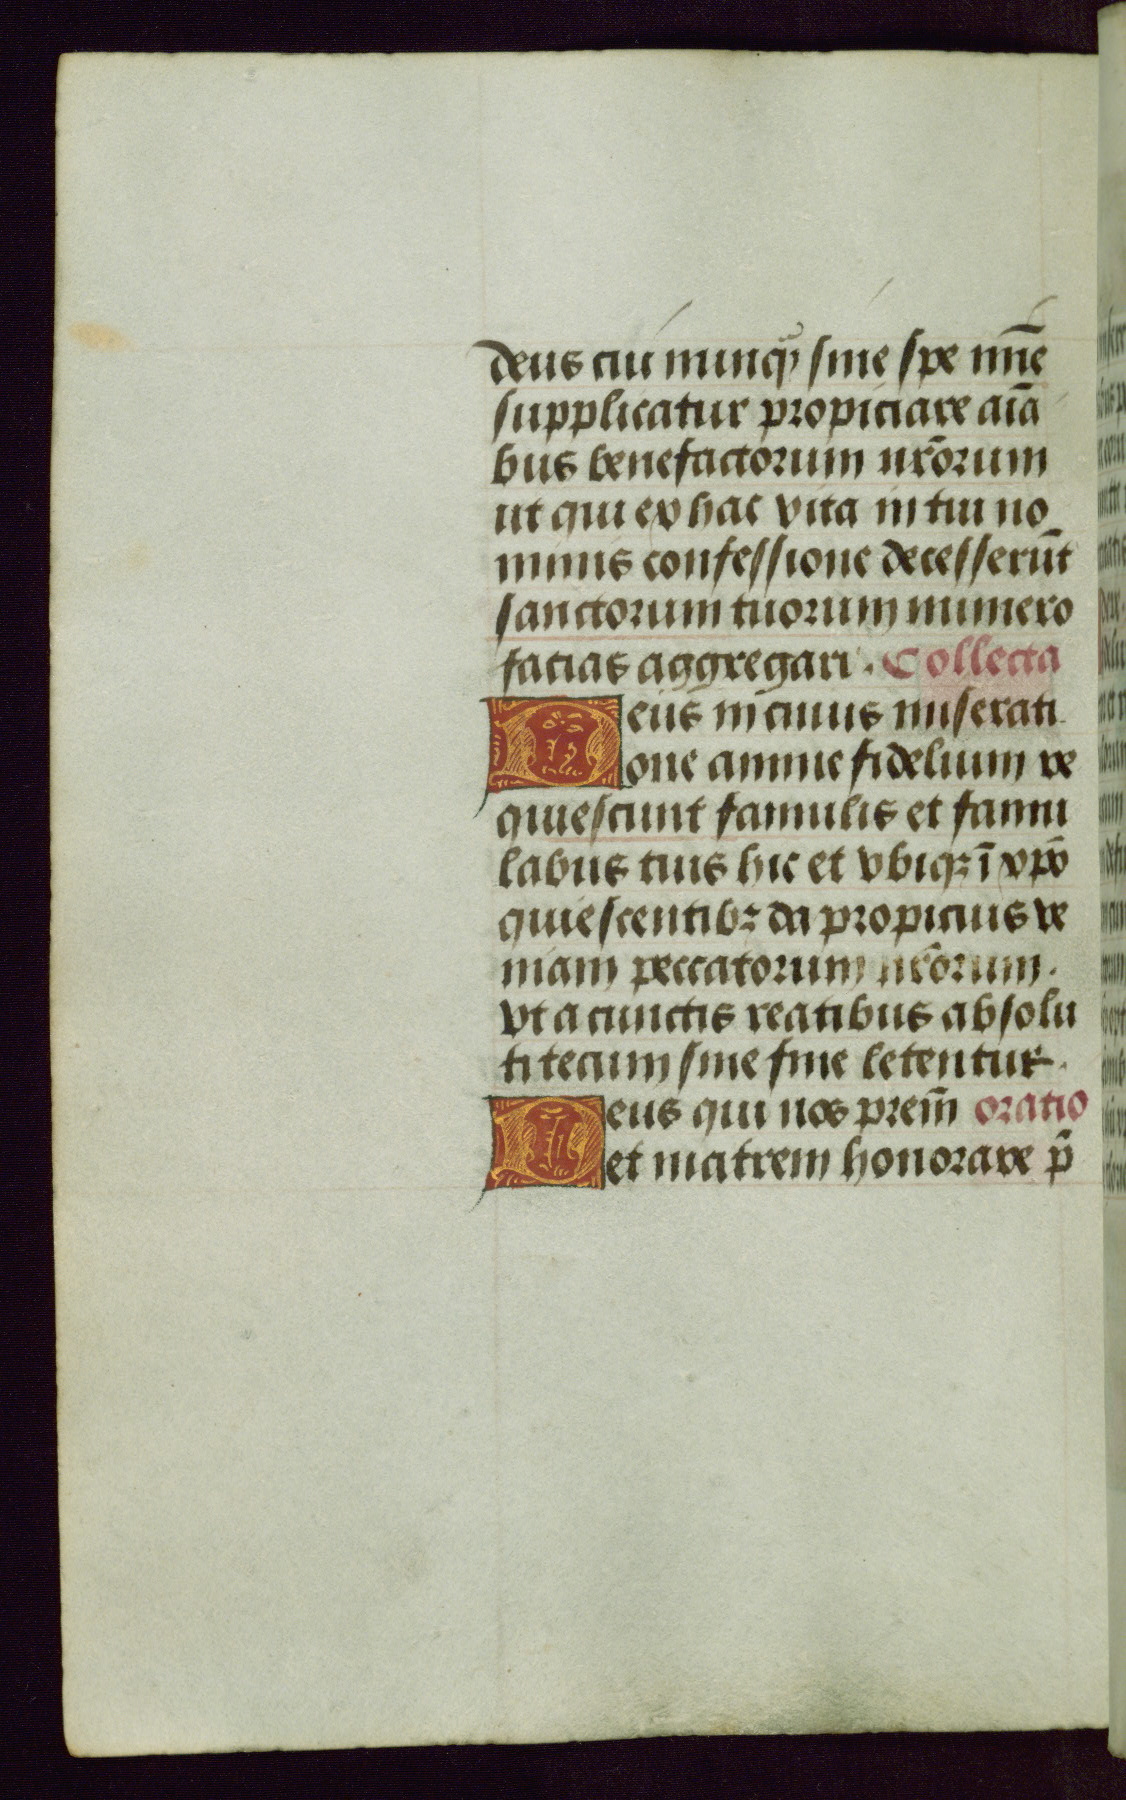 deus cui nunq̃ sine spe mīe
supplicatur propiciare aīa
bus benefactorum nr̄orum
ut qui ex hac vita in tui no
minis confessione decesserūt
sanctorum tuorum numero
facias aggregari. Collecta
Deus in cuius miserati
one anime fidelium re
quiescunt famulis et famu
labus tuis hic et vbiqꝫ ī xp̄o
quiescentibꝫ da propicius ve
niam peccatorum nr̄orum.
vt a cunctis reatibus absolu
ti tecum sine fine letentur.
Deus qui nos prem̄ oratio
et matrem honorare p̄